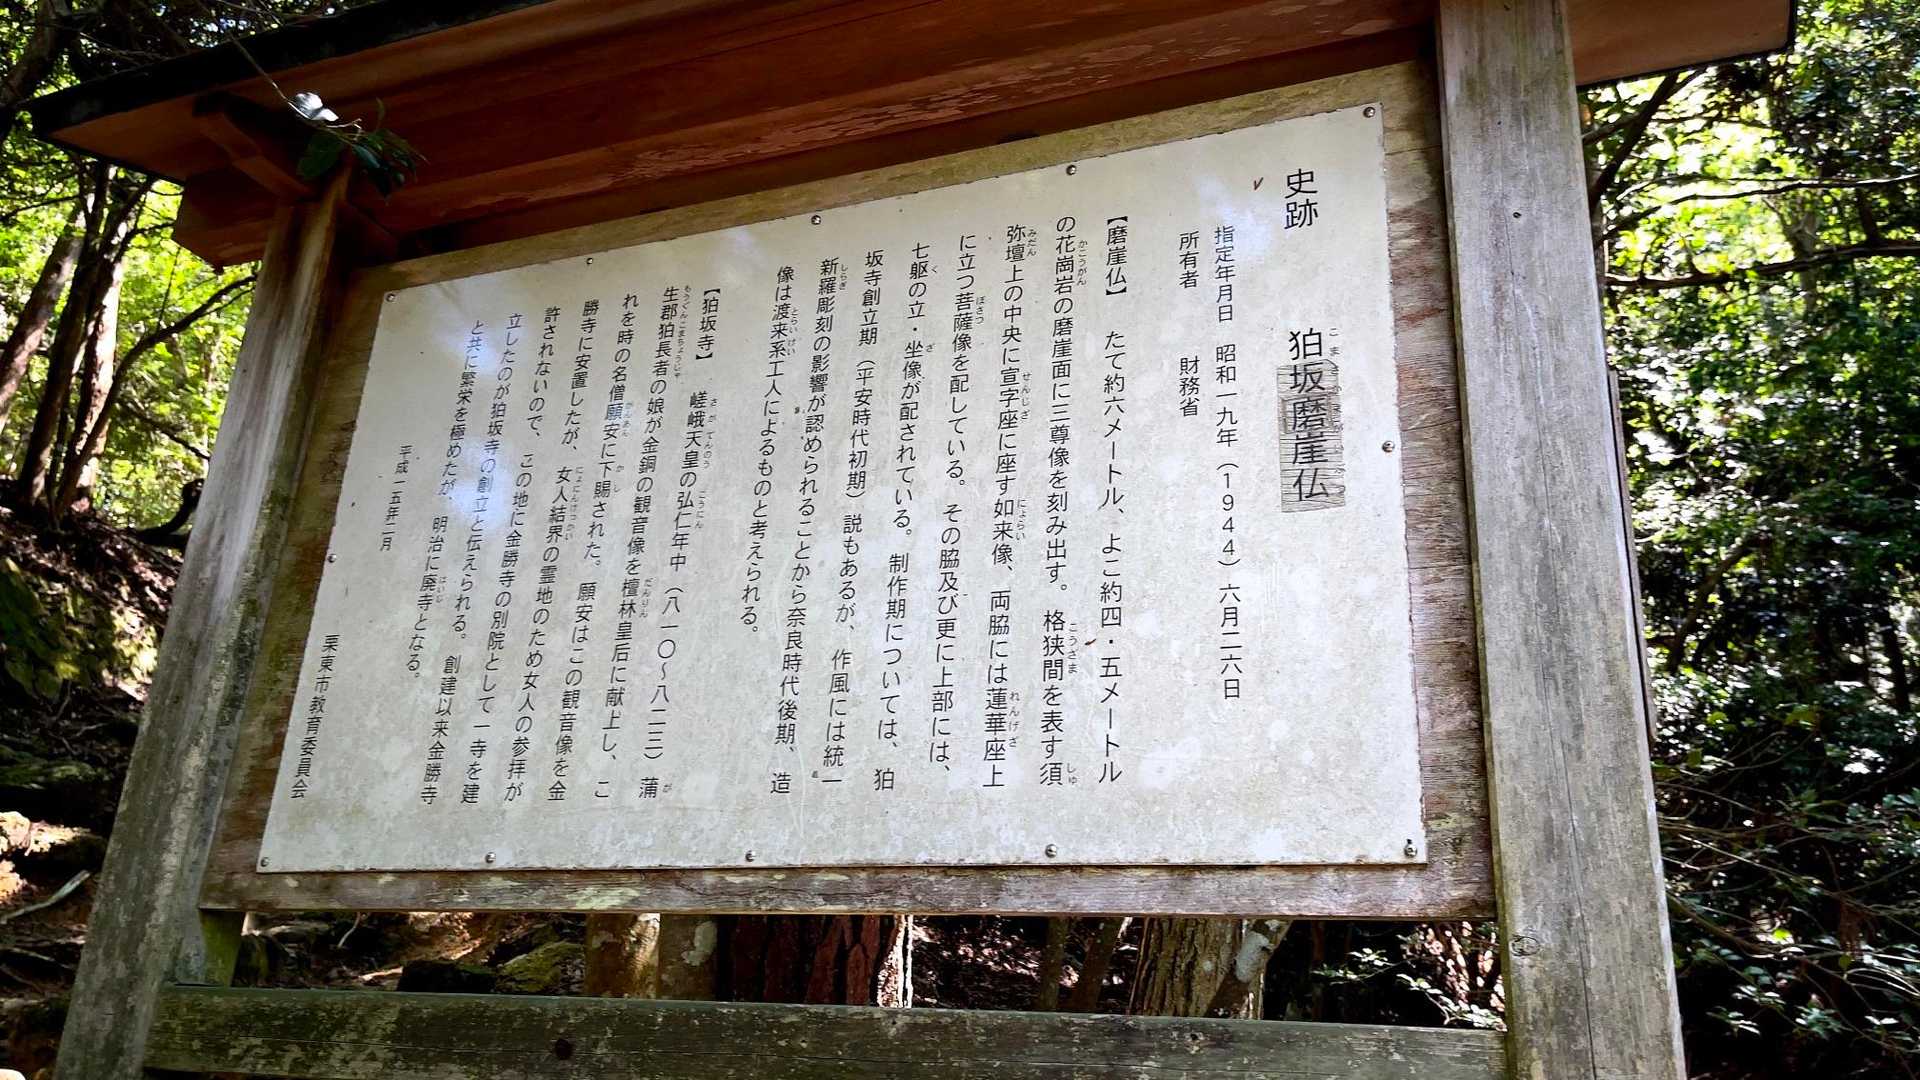 史跡　狛坂磨崖仏
指定年月日　昭和一九年（1944）六月二六日
所有者　財務省
【磨崖仏】　たて約六メートル、よこ約四・五メートル
の花崗岩の磨崖面に三尊像を刻み出す。格狭間を表す須
弥壇上の中央に宣字座に座す如来像、両脇には蓮華座上
に立つ菩薩像を配している。その脇及び更に上部には、
七躯の立・坐像が配されている。制作期については、狛
坂寺創立期（平安時代初期）説もあるが、作風には統一
新羅彫刻の影響が認められることから奈良時代後期、造
像は渡来系工人によるものと考えられる。
【狛坂寺】　嵯峨天皇の弘仁年中（八一〇～八二三）蒲
生郡狛長者の娘が金銅の観音像を檀林皇后に献上し、こ
れを時の名僧願安に下賜された。願安はこの観音像を金
勝寺に安置したが、女人結界の霊地のため女人の参拝が
許されないので、この地に金勝寺の別院として一寺を建
立したのが狛坂寺の創立と伝えられる。創建以来金勝寺
と共に繁栄を極めたが、明治に廃寺となる。
平成一五年二月
栗東市教育委員会